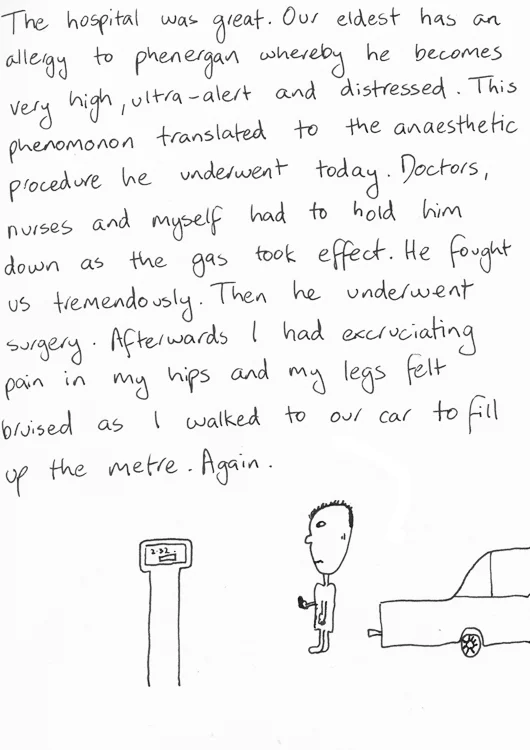 The hospital was great. Our eldest has an
allergy to phenergan whereby he becomes
very high, ultra-alert and distressed. This
phenomonon translated to the anaesthetic
procedure he underwent today. Doctors,
nurses and myself had to hold him
down as the gas took effect. He fought
us tremendously. Then he underwent
surgery. Afterwards I had excruciating
pain in my hips and my legs felt
bruised as I walked to our car to fill
up the metre. Again.
2.32